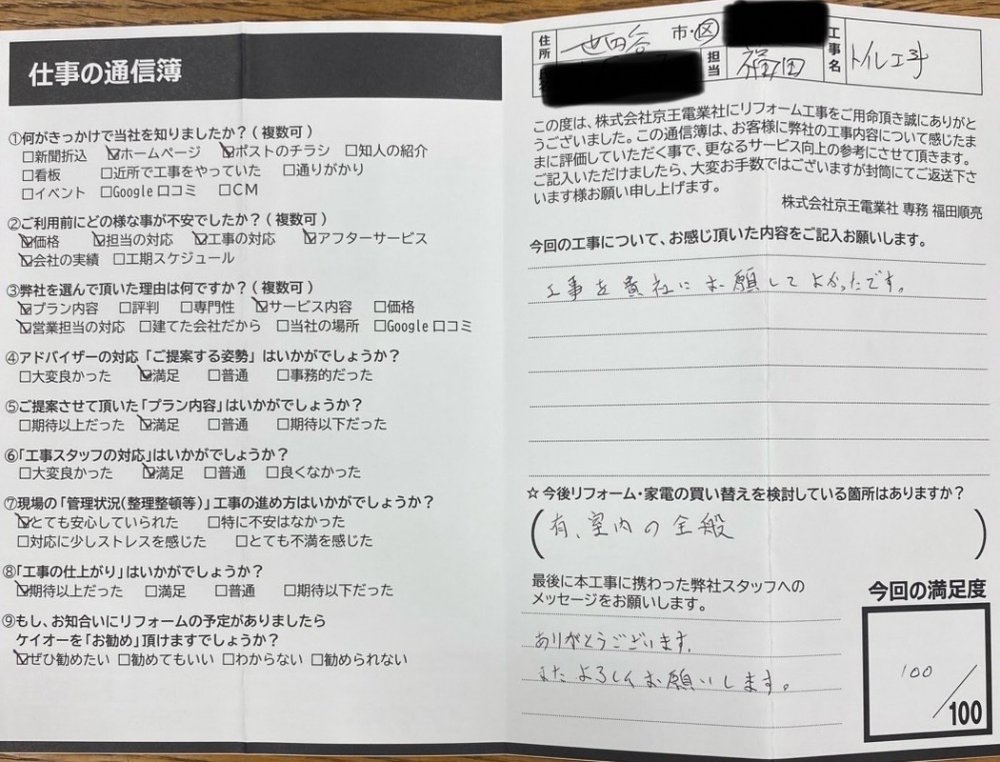 仕事の通信簿
①何がきっかけで当社を知りましたか？(複数可)
□新聞折込 ☑ホームページ ☑ポストのチラシ □知人の紹介
□看板 □近所で工事をやっていた □通りがかり
□イベント □Google口コミ □CM
②ご利用前にどの様な事が不安でしたか？(複数可)
☑価格 ☑担当の対応 ☑工事の対応 ☑アフターサービス
☑会社の実績 □工期スケジュール
③弊社を選んで頂いた理由は何ですか？(複数可)
☑プラン内容 □評判 □専門性 ☑サービス内容 □価格
☑営業担当の対応 □建てた会社だから □当社の場所 □Google口コミ
④アドバイザーの対応「ご提案する姿勢」はいかがでしょうか？
□大変良かった ☑満足 □普通 □事務的だった
⑤ご提案させて頂いた「プラン内容」はいかがでしょうか？
□期待以上だった ☑満足 □普通 □期待以下だった
⑥「工事スタッフの対応」はいかがでしょうか？
□大変良かった ☑満足 □普通 □良くなかった
⑦現場の「管理状況(整理整頓等)」工事の進め方はいかがでしょうか？
☑とても安心していられた □特に不安はなかった
□対応に少しストレスを感じた □とても不満を感じた
⑧「工事の仕上がり」はいかがでしょうか？
☑期待以上だった □満足 □普通 □期待以下だった
⑨もし、お知合いにリフォームの予定がありましたら
ケイオーを「お勧め」頂けますでしょうか？
☑ぜひ勧めたい □勧めてもいい □わからない □勧められない
住所 世田谷 市・区 担当 福田 工事名 トイレ工事
この度は、株式会社京王電業社にリフォーム工事をご用命頂き誠にありがと
うございました。この通信簿は、お客様に弊社の工事内容について感じたま
まに評価していただく事で、更なるサービス向上の参考にさせて頂きます。
ご記入いただけましたら、大変お手数ではございますが封筒にてご返送下さ
います様お願い申し上げます。
株式会社京王電業社 専務 福田順亮
今回の工事について、お感じ頂いた内容をご記入お願いします。
工事を貴社にお願してよかったです。
☆今後リフォーム・家電の買い替えを検討している箇所はありますか？
(有、室内の全般)
最後に本工事に携わった弊社スタッフへの
メッセージをお願いします。
ありがとうございます。
またよろしくお願いします。
今回の満足度
100/100